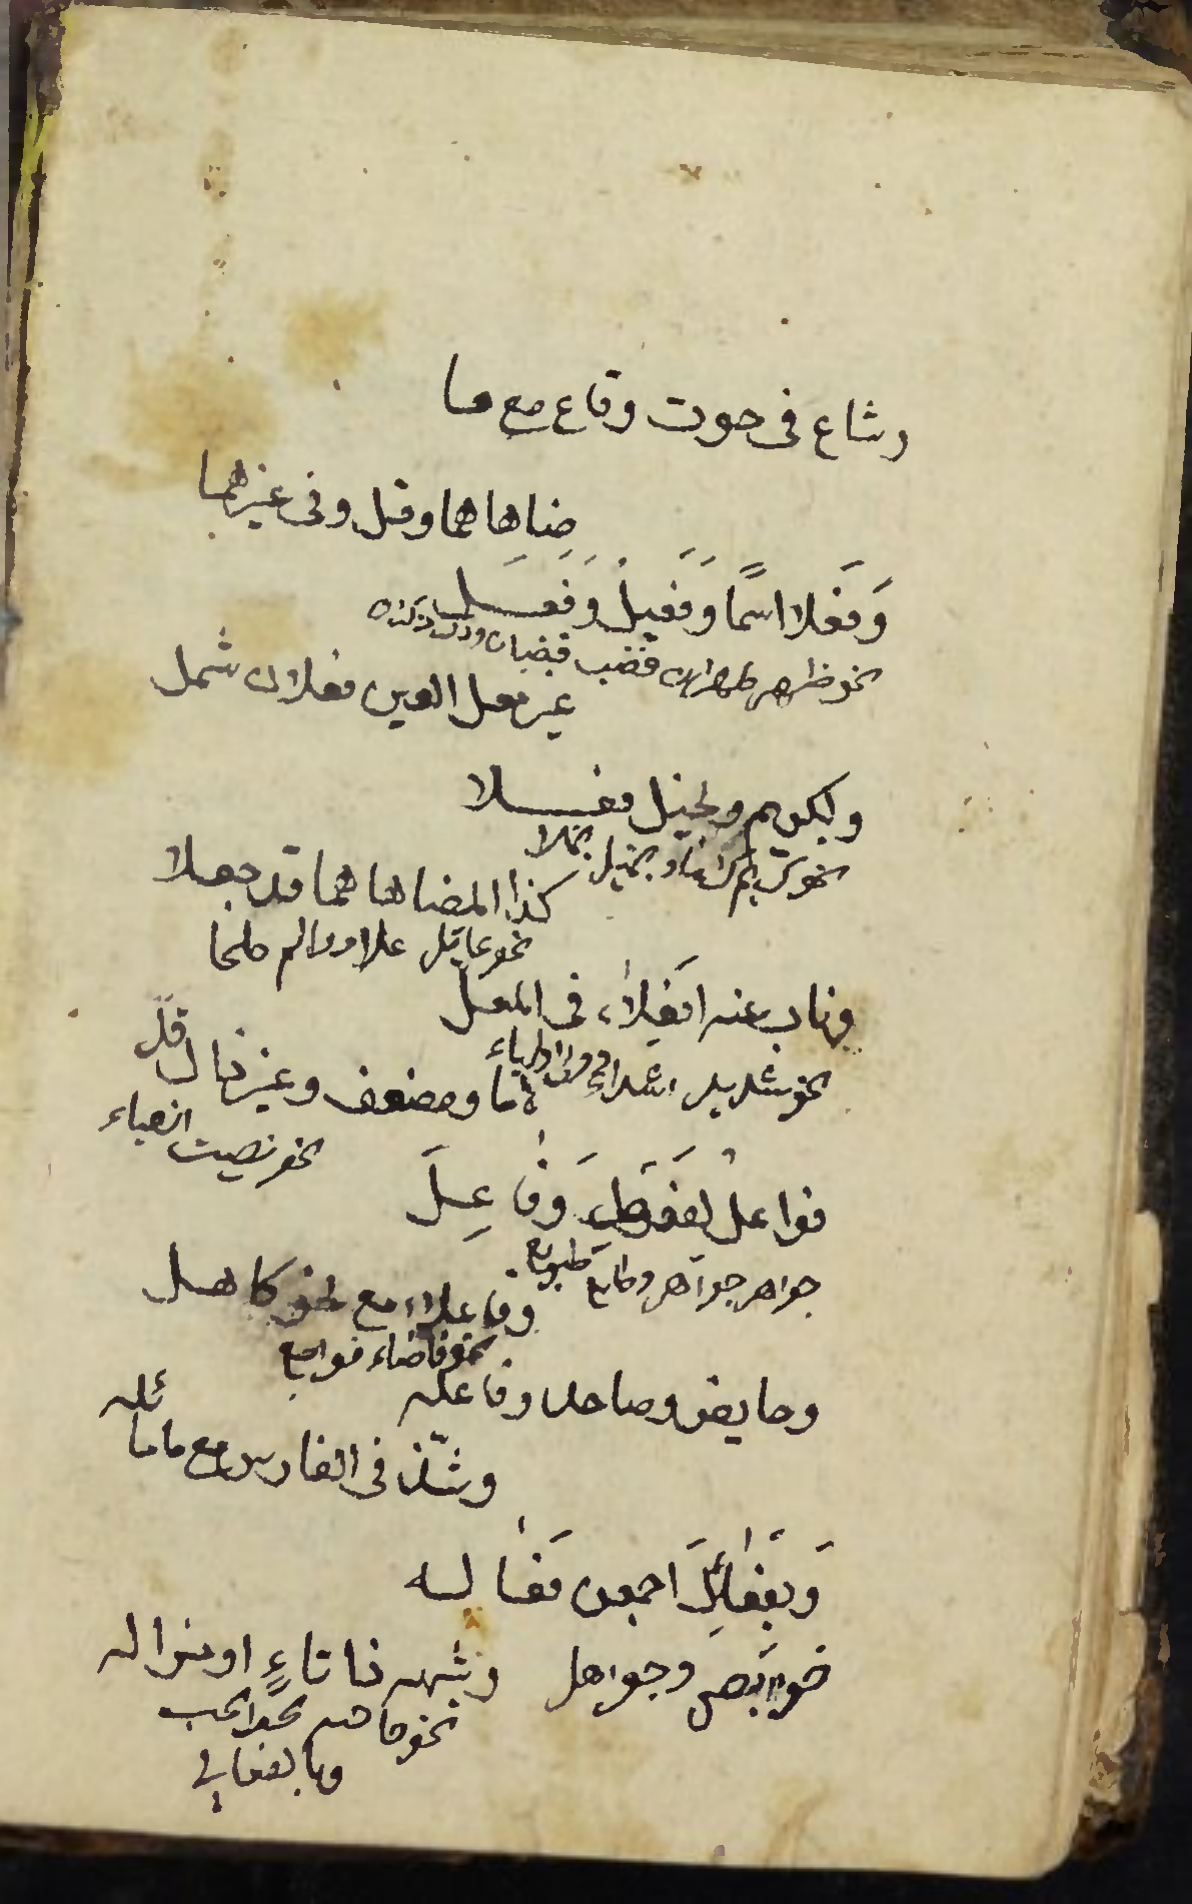 وشاع فى حوت وقاع مع ما
ضاهاهما وقل وفى غيرهما
وَفَعْلا اسمًا وفَعِيلْ وَفَعَل
نحو ظهر ظهران قضب قضبان
غير معل العين فعلان شمل
ولكريم وبخيل فعلا
نحو كريم كرما وبخيل بخلا
كذا المضاهاهما قد جعلا
نحو عاقل عقلا
وناب عنه افعِلاء فى المعل
نحو شديد اشداء
لاما ومضعف وغير ذاك قلّ
نحو نصيب انصباء
فواعلْ لفَوعَلٍ وَفَاعِلَ
جواهر جواهر وطابع طوابع
وفاعلاء مع نحو كاهل
نحو قاصعاء قواصع
وحايض وصاهل وفاعله
وشذّ فى الفارس مع ما ماثله
وَبِفَعَائِلَ اجمعن فَعَاله
وشبهه ذا تاءٍ او مزاله
حوايص وجواهل
نحو
وبالفعالي